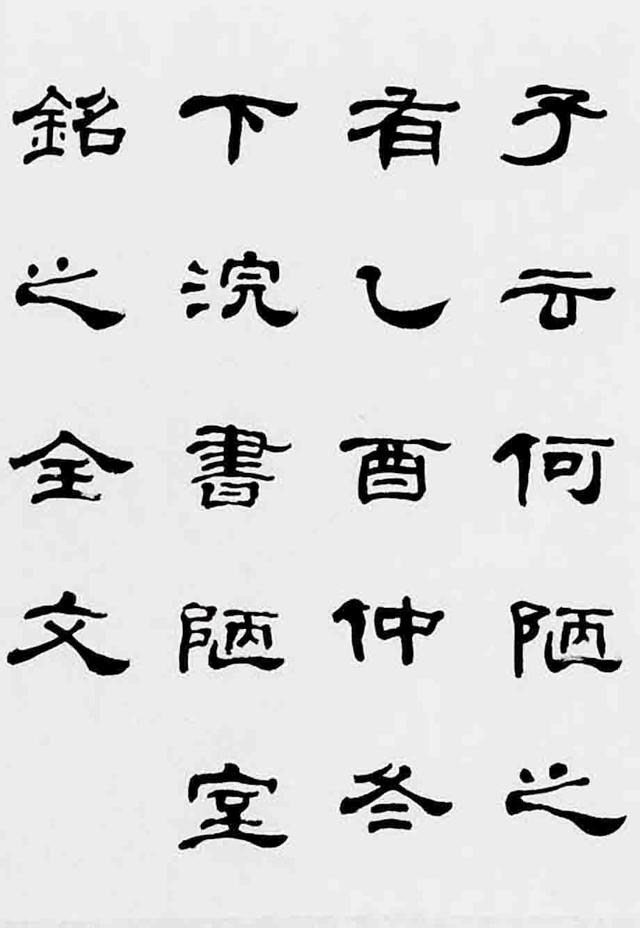 子云何陋之
有乙酉仲冬
下浣書陋室
銘之全文